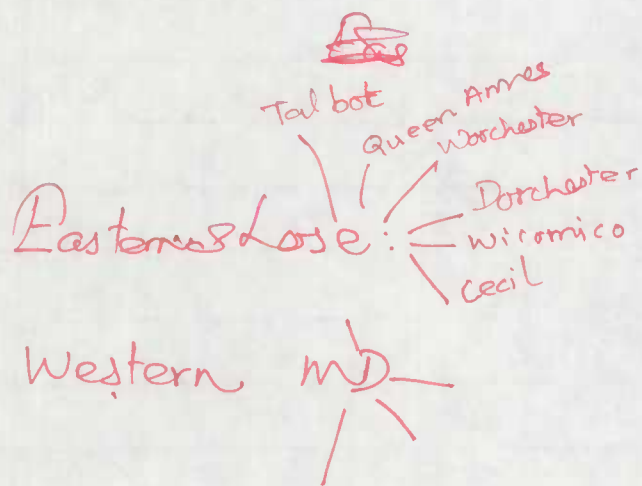 Talbot
Queen Annes
Worchester
Dorchester
Wicomico
Cecil
Western MD